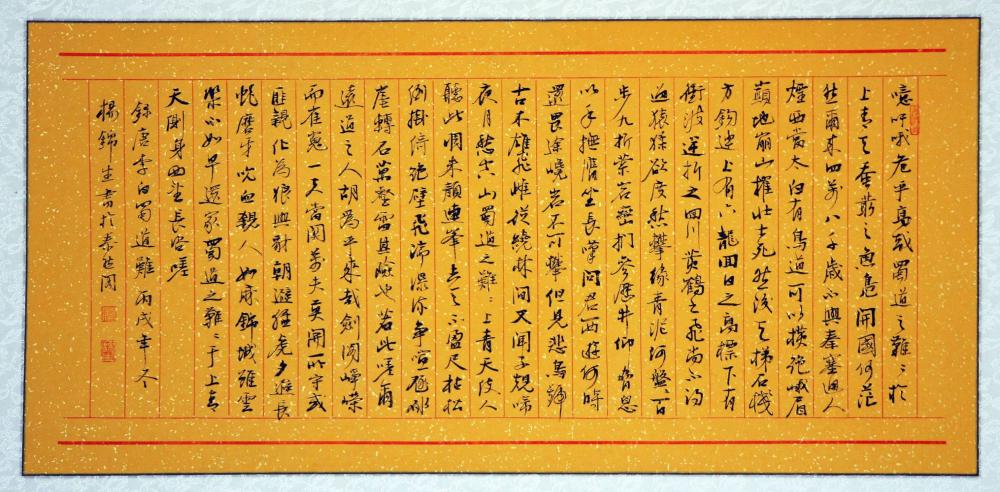 噫吁戲危乎高哉蜀道之難〻於
上青天蠶叢之魚鳧開國何茫
然爾來四萬八千歲不與秦塞通人
煙西當太白有鳥道可以橫絕峨眉
巔地崩山摧壯士死然後天梯石棧
方鈎連上有六龍回日之高標下有
衝波逆折之回川黃鶴之飛尚不得
過猿猱欲度愁攀緣青泥何盤〻百
步九折縈岩巒捫參歷井仰脅息
以手撫膺坐長嘆問君西遊何時
還畏途巉岩不可攀但見悲鳥號
古木雄飛雌從繞林間又聞子規啼
夜月愁空山蜀道之難〻上青天使人
聽此凋朱顏連峯去天不盈尺枯松
倒掛倚絕壁飛湍瀑流爭喧豗砯
崖轉石萬壑雷其險也若此嗟爾
遠道之人胡爲乎來哉劍閣崢嶸
而崔嵬一夫當關萬夫莫開所守或
匪親化為狼與豺朝避猛虎夕避長
蛇磨牙吮血殺人如麻錦城雖雲
樂不如早還家蜀道之難〻于上青
天側身西望長咨嗟
錄唐李白蜀道難 丙戌年冬
楊錦生書於泰 閣